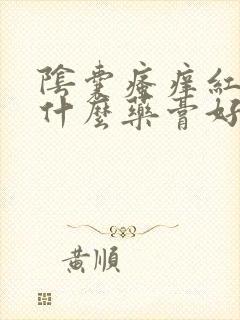 陰囊瘙痒紅
什麼藥膏好
黃順